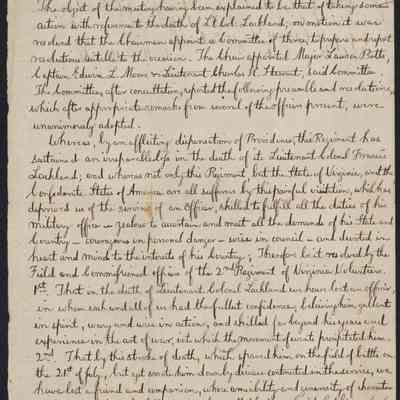 The object of the meeting having been explained to be that of taking some
action with reference to the death of Lt Col. Lackland; on motion it was
resolved that the Chairman appoint a Committee of three, to prepare and report
resolutions suitable to the occasion. The Chair appointed Major Lawson Botts,
Captain Edwin L. Moore & Lieutenant Charles H. Stewart, said Committee.
The Committee, after consultation, reported the following preamble and resolutions,
which after appropriate remarks from several of the officers present, were
unanimously adopted.
Whereas, by an afflicting dispensation of Providence, this Regiment has
sustained an irreparable loss in the death of its Lieutenant Colonel Francis
Lackland; and whereas not only this Regiment, but the State of Virginia, and the
Confederate States of America are all sufferers by this painful visitation, which has
deprived us of the services of an Officer, skilled to fulfill all the duties of his
military office — zealous to ascertain and meet all the demands of his State and
Country — courageous in personal danger — wise in council — and devoted in
heart and mind to the interests of his Country; Therefore be it resolved by the
Field and Commissioned officers of the 2nd Regiment of Virginia Volunteers.
1st. That in the death of Lieutenant Colonel Lackland we have lost an officer,
in whom each and all of us had the fullest confidence, believing him gallant
in spirit, wary and wise in action, and skilled far beyond his years and
experience in the art of war, into which the movement of events precipitated him.
2nd. That by this stroke of death, which spared him on the field of battle on
the 21st of July, but yet smote him down by disease contracted in the service, we
have lost a friend and companion, whose amiability and generosity of character